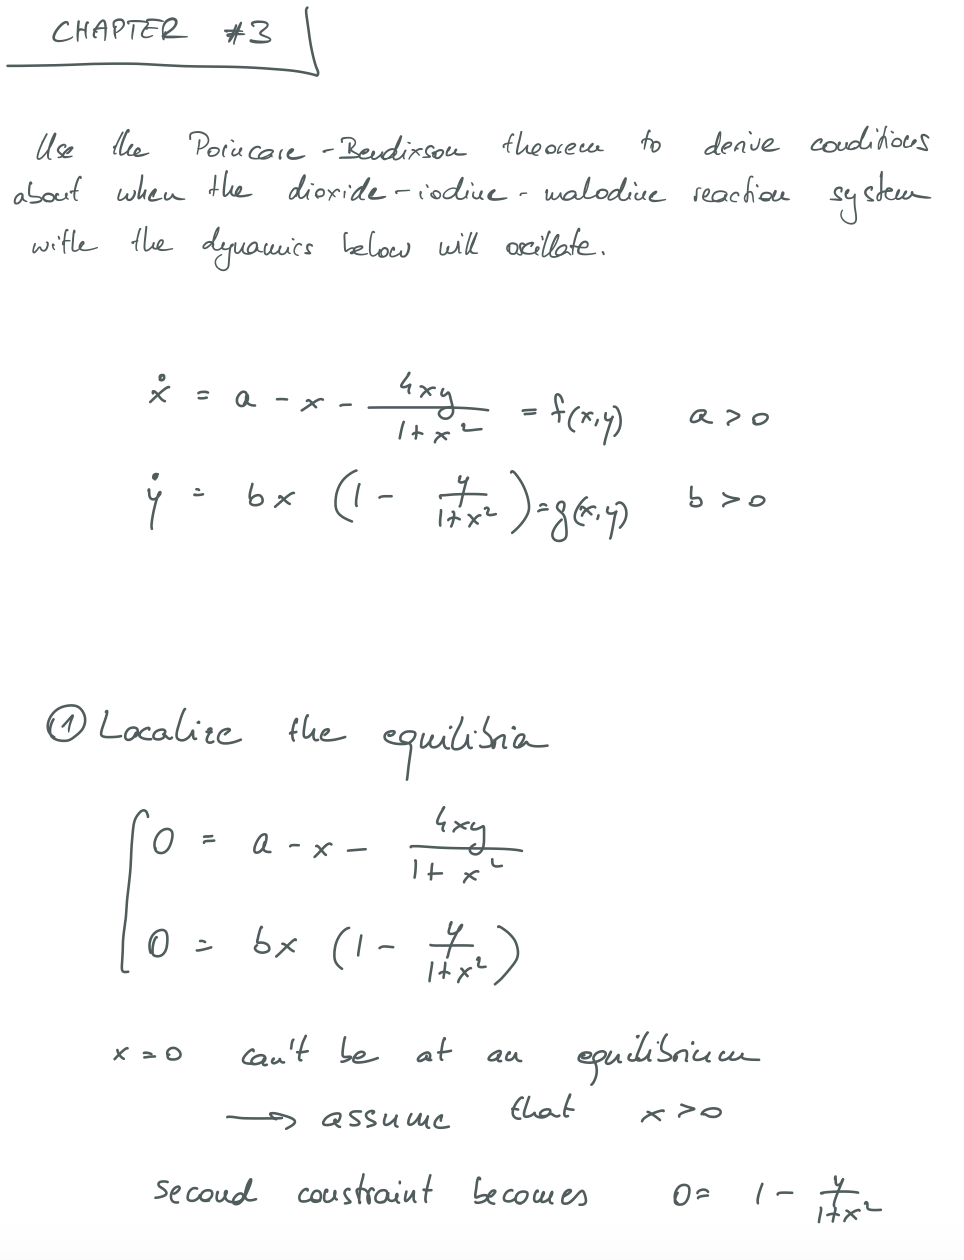 CHAPTER #3
Use the Poincare-Bendixson theorem to derive conditions
about when the dioxide-iodine-malodine reaction system
with the dynamics below will oscillate.
ẋ = a - x - 4xy/(1+x²) = f(x,y) a > 0
ẏ = bx (1 - y/(1+x²)) = g(x,y) b > 0
① Localize the equilibria
0 = a - x - 4xy/(1+x²)
0 = bx (1 - y/(1+x²))
x = 0 can't be at an equilibrium
→ assume that x > 0
second constraint becomes 0 = 1 - y/(1+x²)